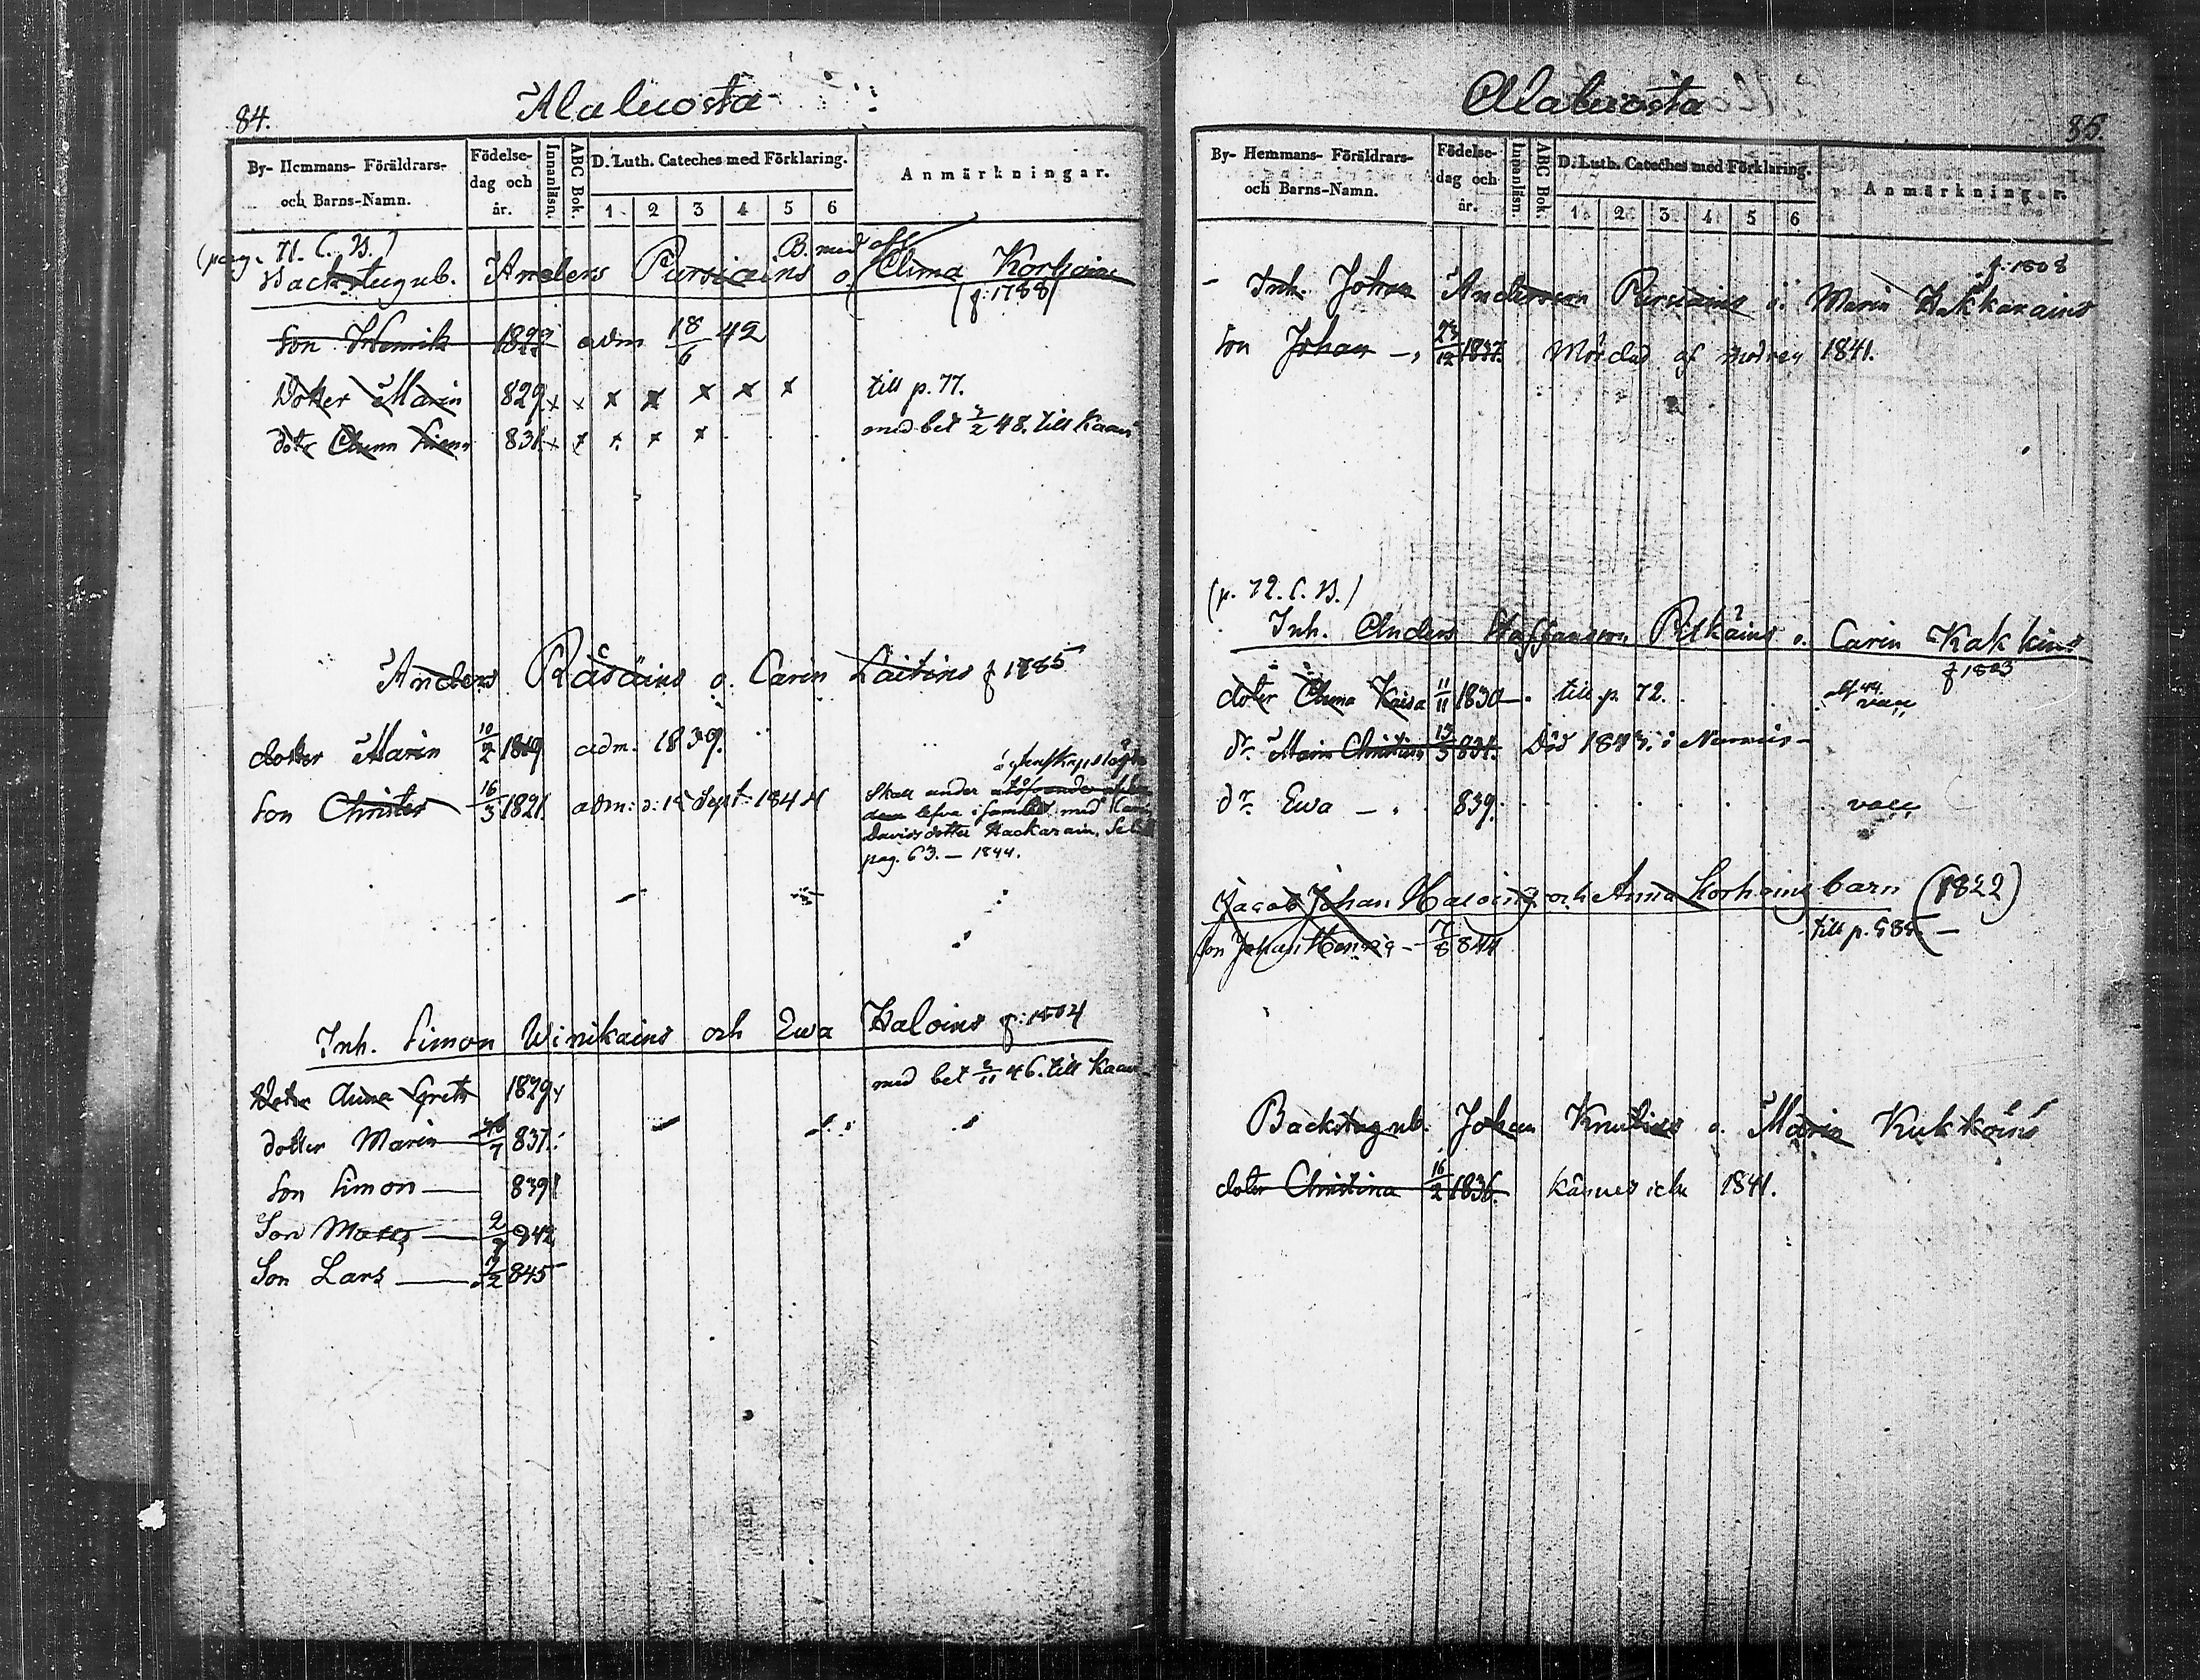 84.
Alaluosta
By- Hemmans- Föräldrars- och Barns-Namn.
Födelse- dag och år.
Innanläsn.
ABC Bok.
D. Luth. Cateches med Förklaring.
1 2 3 4 5 6
Anmärkningar.
(pag. 71. C. B.)
Backstugub. Anders Pursiains o. Anna Korhoin
B. med
(f: 1788)
Son Henrik adm 18/6 42
Dotter Maria 829 x x x x x x x till p. 77.
dotr Anna 831 x x x x x med bet 48. till Kaavi
Anders Räsäins o. Carin Laitins f 1785
dotter Maria 10/2 1819 adm. 1839.
Son Christer 16/3 1821. adm: d: 15 Sept. 1844
Skall under
lefva i med
Davidsdotter Hackarain,
pag. 63. – 1844.
Inh. Simon Winikains och Ewa Haloins f: 1804
Dotter Anna Greta 1829 x med bet 2/11 46. till Kaavi
dotter Maria 837.
Son Simon 839
Son Mats 2/7 842
Son Lars 845
Alaluosta
85.
By- Hemmans- Föräldrars- och Barns-Namn.
Födelse- dag och år.
Innanläsn.
ABC Bok.
D. Luth. Cateches med Förklaring.
1 2 3 4 5 6
Anmärkningar.
f: 1808
Inh. Johan Andersson Pursiains o. Maria Hakkarains
Son Johan 23/12 1837. Mördad af modren 1841.
(p. 72. C. B.)
Inh. Anders Staffansson Pitkäins o. Carin Kakkins
f 1803
doter Anna Kaisa 11/11 1830 till p. 72. vacc
dr. Maria Christina 831. Död 1843. i
dr. Ewa 839. vacc
Jacob Johan Haloins och Anna Korhoins barn (1822)
Son Johan 17/8 844 till p.
Backstugub. Johan Knutins o. Maria Kukkoins
doter Christina 16/2 1836. Kännes icke 1841.